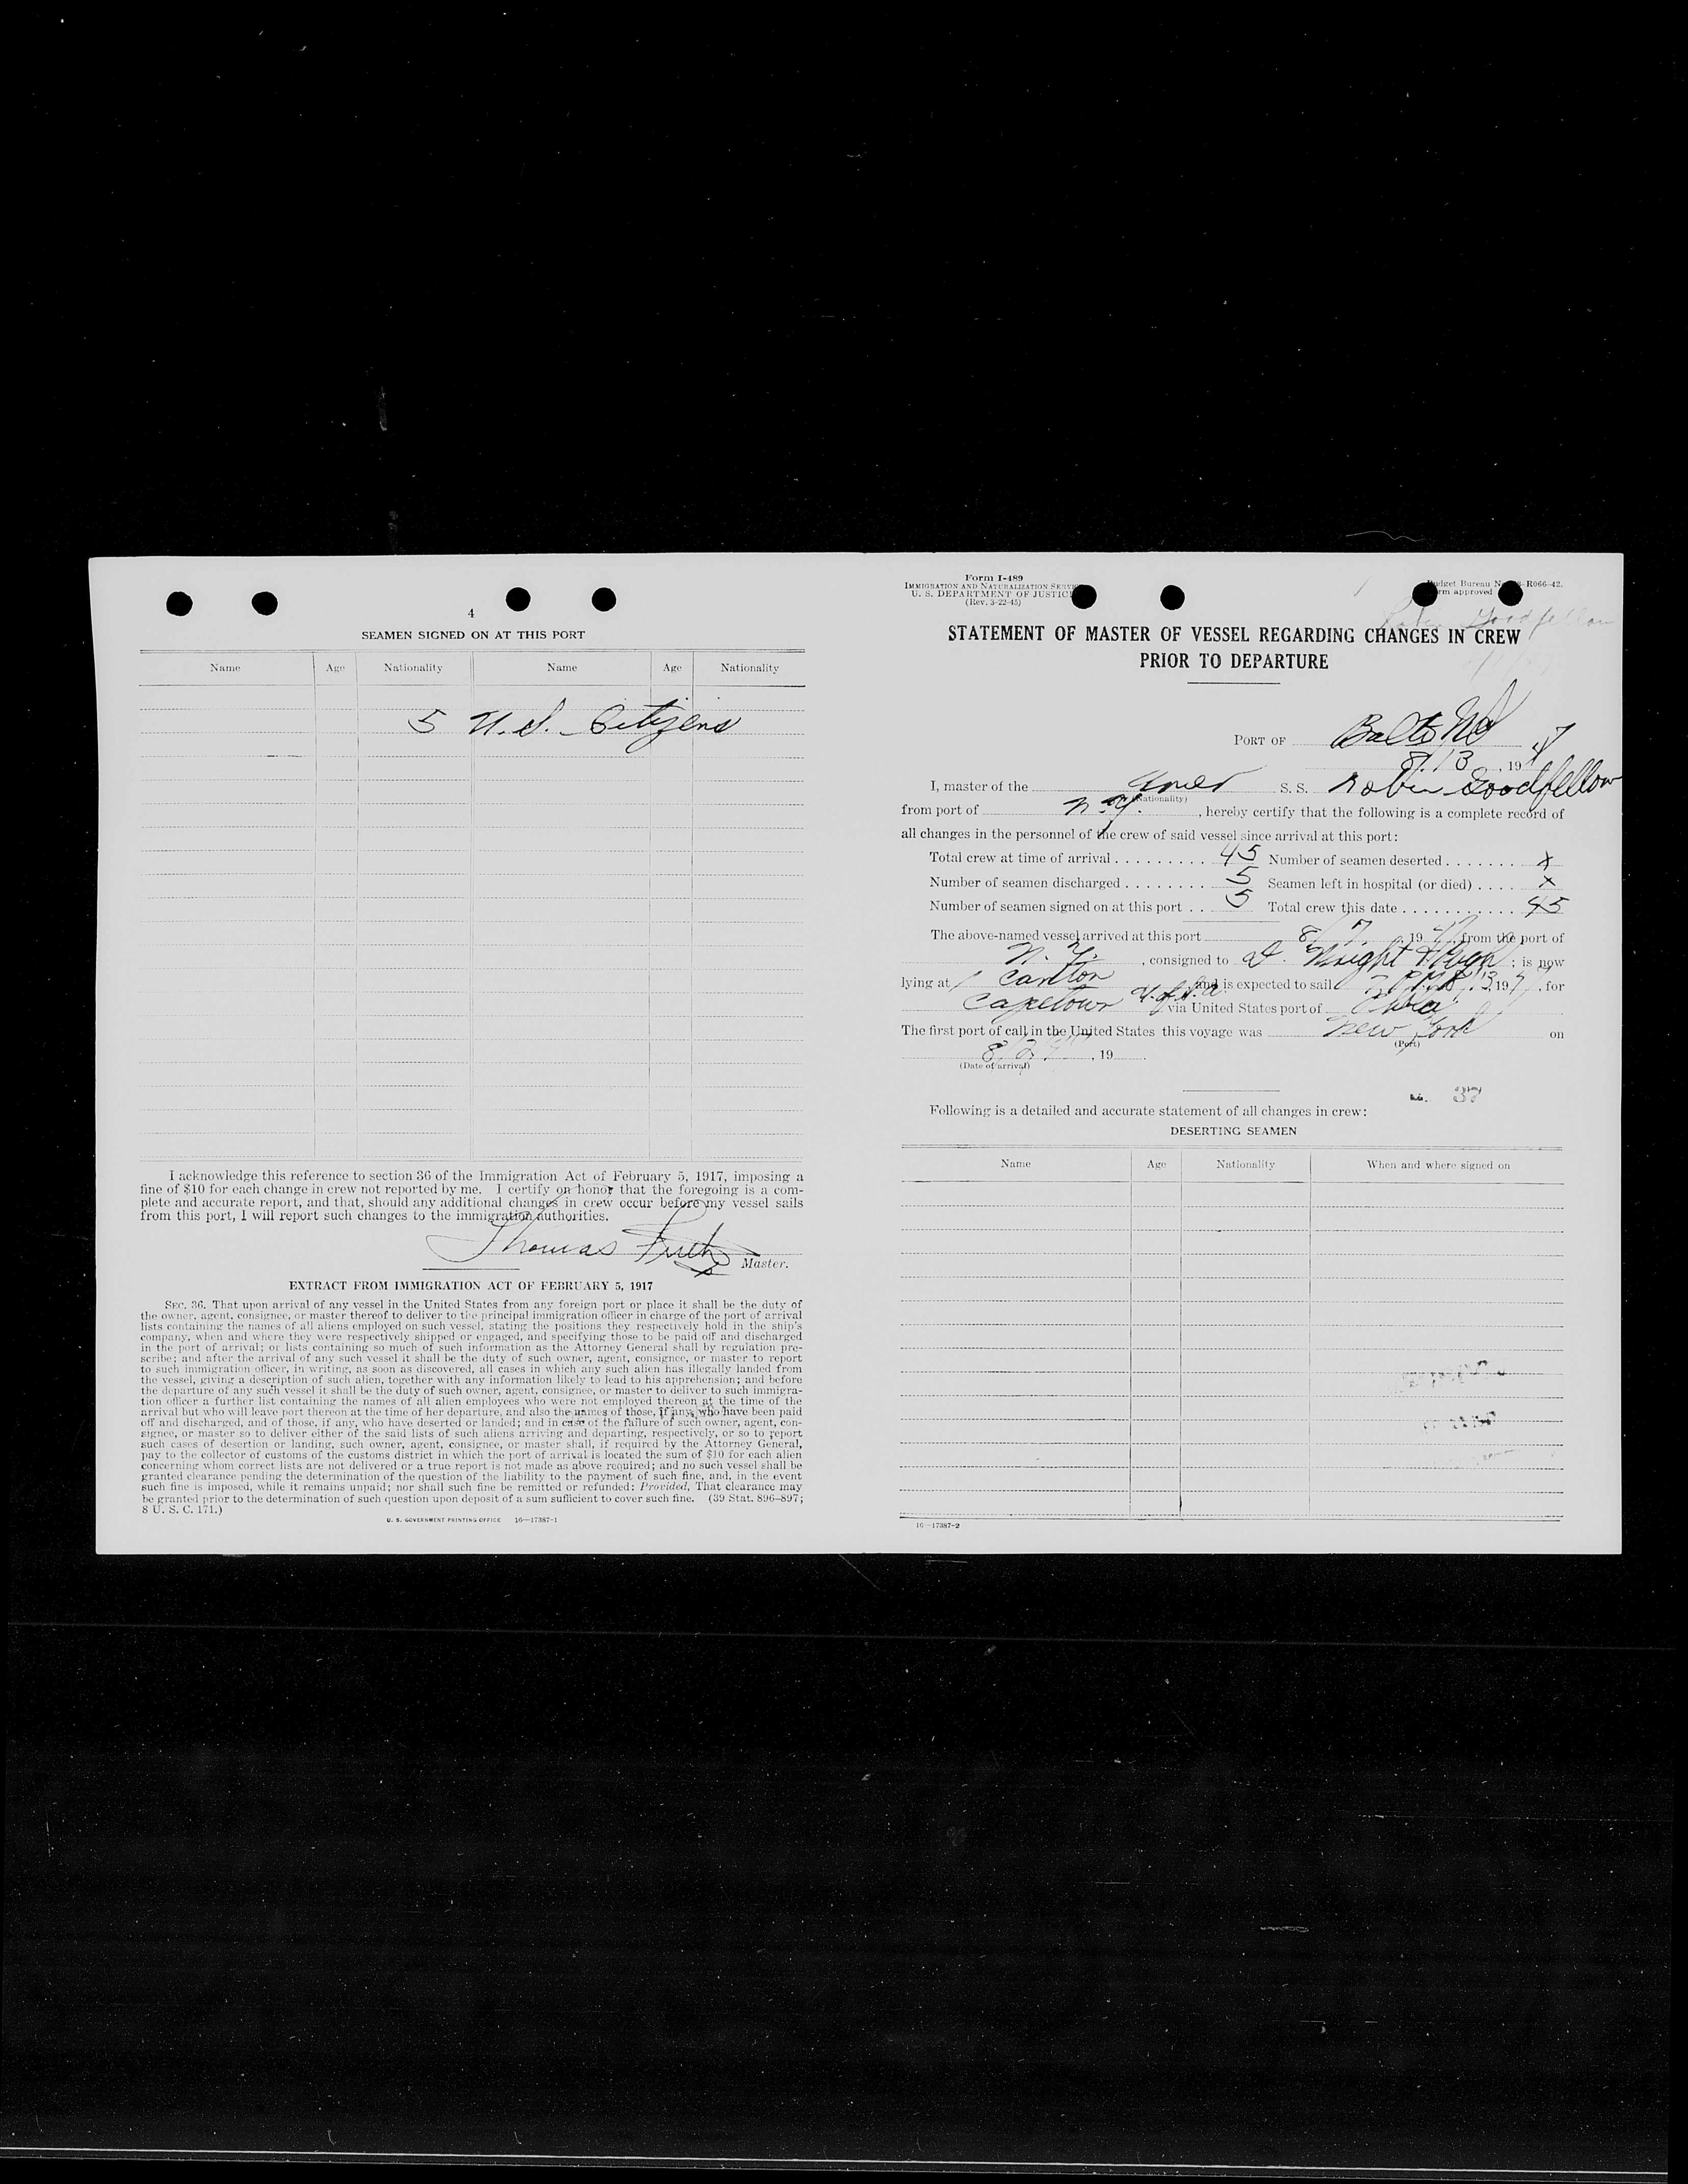 4
SEAMEN SIGNED ON AT THIS PORT
Name Age Nationality Name Age Nationality
5 U.S. Citizens
I acknowledge this reference to section 36 of the Immigration Act of February 5, 1917, imposing a
fine of $10 for each change in crew not reported by me. I certify on honor that the foregoing is a com-
plete and accurate report, and that, should any additional changes in crew occur before my vessel sails
from this port, I will report such changes to the immigration authorities.
Thomas
Master.
EXTRACT FROM IMMIGRATION ACT OF FEBRUARY 5, 1917
SEC. 36. That upon arrival of any vessel in the United States from any foreign port or place it shall be the duty of
the owner, agent, consignee, or master thereof to deliver to the principal immigration officer in charge of the port of arrival
lists containing the names of all aliens employed on such vessel, stating the positions they respectively hold in the ship's
company, when and where they were respectively shipped or engaged, and specifying those to be paid off and discharged
in the port of arrival; or lists containing so much of such information as the Attorney General shall by regulation pre-
scribe; and after the arrival of any such vessel it shall be the duty of such owner, agent, consignee, or master to report
to such immigration officer, in writing, as soon as discovered, all cases in which any such alien has illegally landed from
the vessel, giving a description of such alien, together with any information likely to lead to his apprehension; and before
the departure of any such vessel it shall be the duty of such owner, agent, consignee, or master to deliver to such immigra-
tion officer a further list containing the names of all alien employees who were not employed thereon at the time of the
arrival but who will leave port thereon at the time of her departure, and also the names of those, if any, who have been paid
off and discharged, and of those, if any, who have deserted or landed; and in case of the failure of such owner, agent, con-
signee, or master so to deliver either of the said lists of such aliens arriving and departing, respectively, or so to report
such cases of desertion or landing, such owner, agent, consignee, or master shall, if required by the Attorney General,
pay to the collector of customs of the customs district in which the port of arrival is located the sum of $10 for each alien
concerning whom correct lists are not delivered or a true report is not made as above required; and no such vessel shall be
granted clearance pending the determination of the question of the liability to the payment of such fine, and, in the event
such fine is imposed, while it remains unpaid; nor shall such fine be remitted or refunded: Provided, That clearance may
be granted prior to the determination of such question upon deposit of a sum sufficient to cover such fine. (39 Stat. 896–897;
8 U. S. C. 171.)
U. S. GOVERNMENT PRINTING OFFICE 16—17387-1
Form I-489
IMMIGRATION AND NATURALIZATION
U. S. DEPARTMENT OF JUSTICE
(Rev. 3-22-45)
Budget Bureau R066-42.
approved
Robin Goodfellow
STATEMENT OF MASTER OF VESSEL REGARDING CHANGES IN CREW
PRIOR TO DEPARTURE
PORT OF Balto Md
8/13, 1947
I, master of the Amer S. S. Robin Goodfellow
(Nationality)
from port of N.Y., hereby certify that the following is a complete record of
all changes in the personnel of the crew of said vessel since arrival at this port:
Total crew at time of arrival 45 Number of seamen deserted x
Number of seamen discharged 5 Seamen left in hospital (or died) x
Number of seamen signed on at this port 5 Total crew this date 45
The above-named vessel arrived at this port 8/7, 1947, from the port of
N.Y., consigned to ; is now
lying at Canton and is expected to sail 1947, for
Capetown U. of S.A. via United States port of
The first port of call in the United States this voyage was New York on
(Port)
8/2/47, 19
(Date of arrival)
37
Following is a detailed and accurate statement of all changes in crew:
DESERTING SEAMEN
Name Age Nationality When and where signed on
16—17387-2